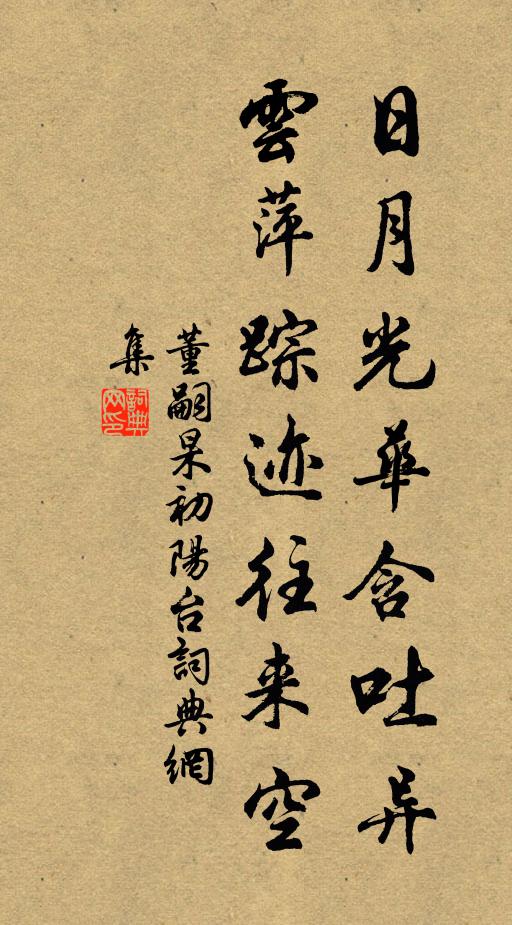 日月光華含吐异
雲萍踪迹往来空
董嗣杲初陽台詞典網
集
詞典网印